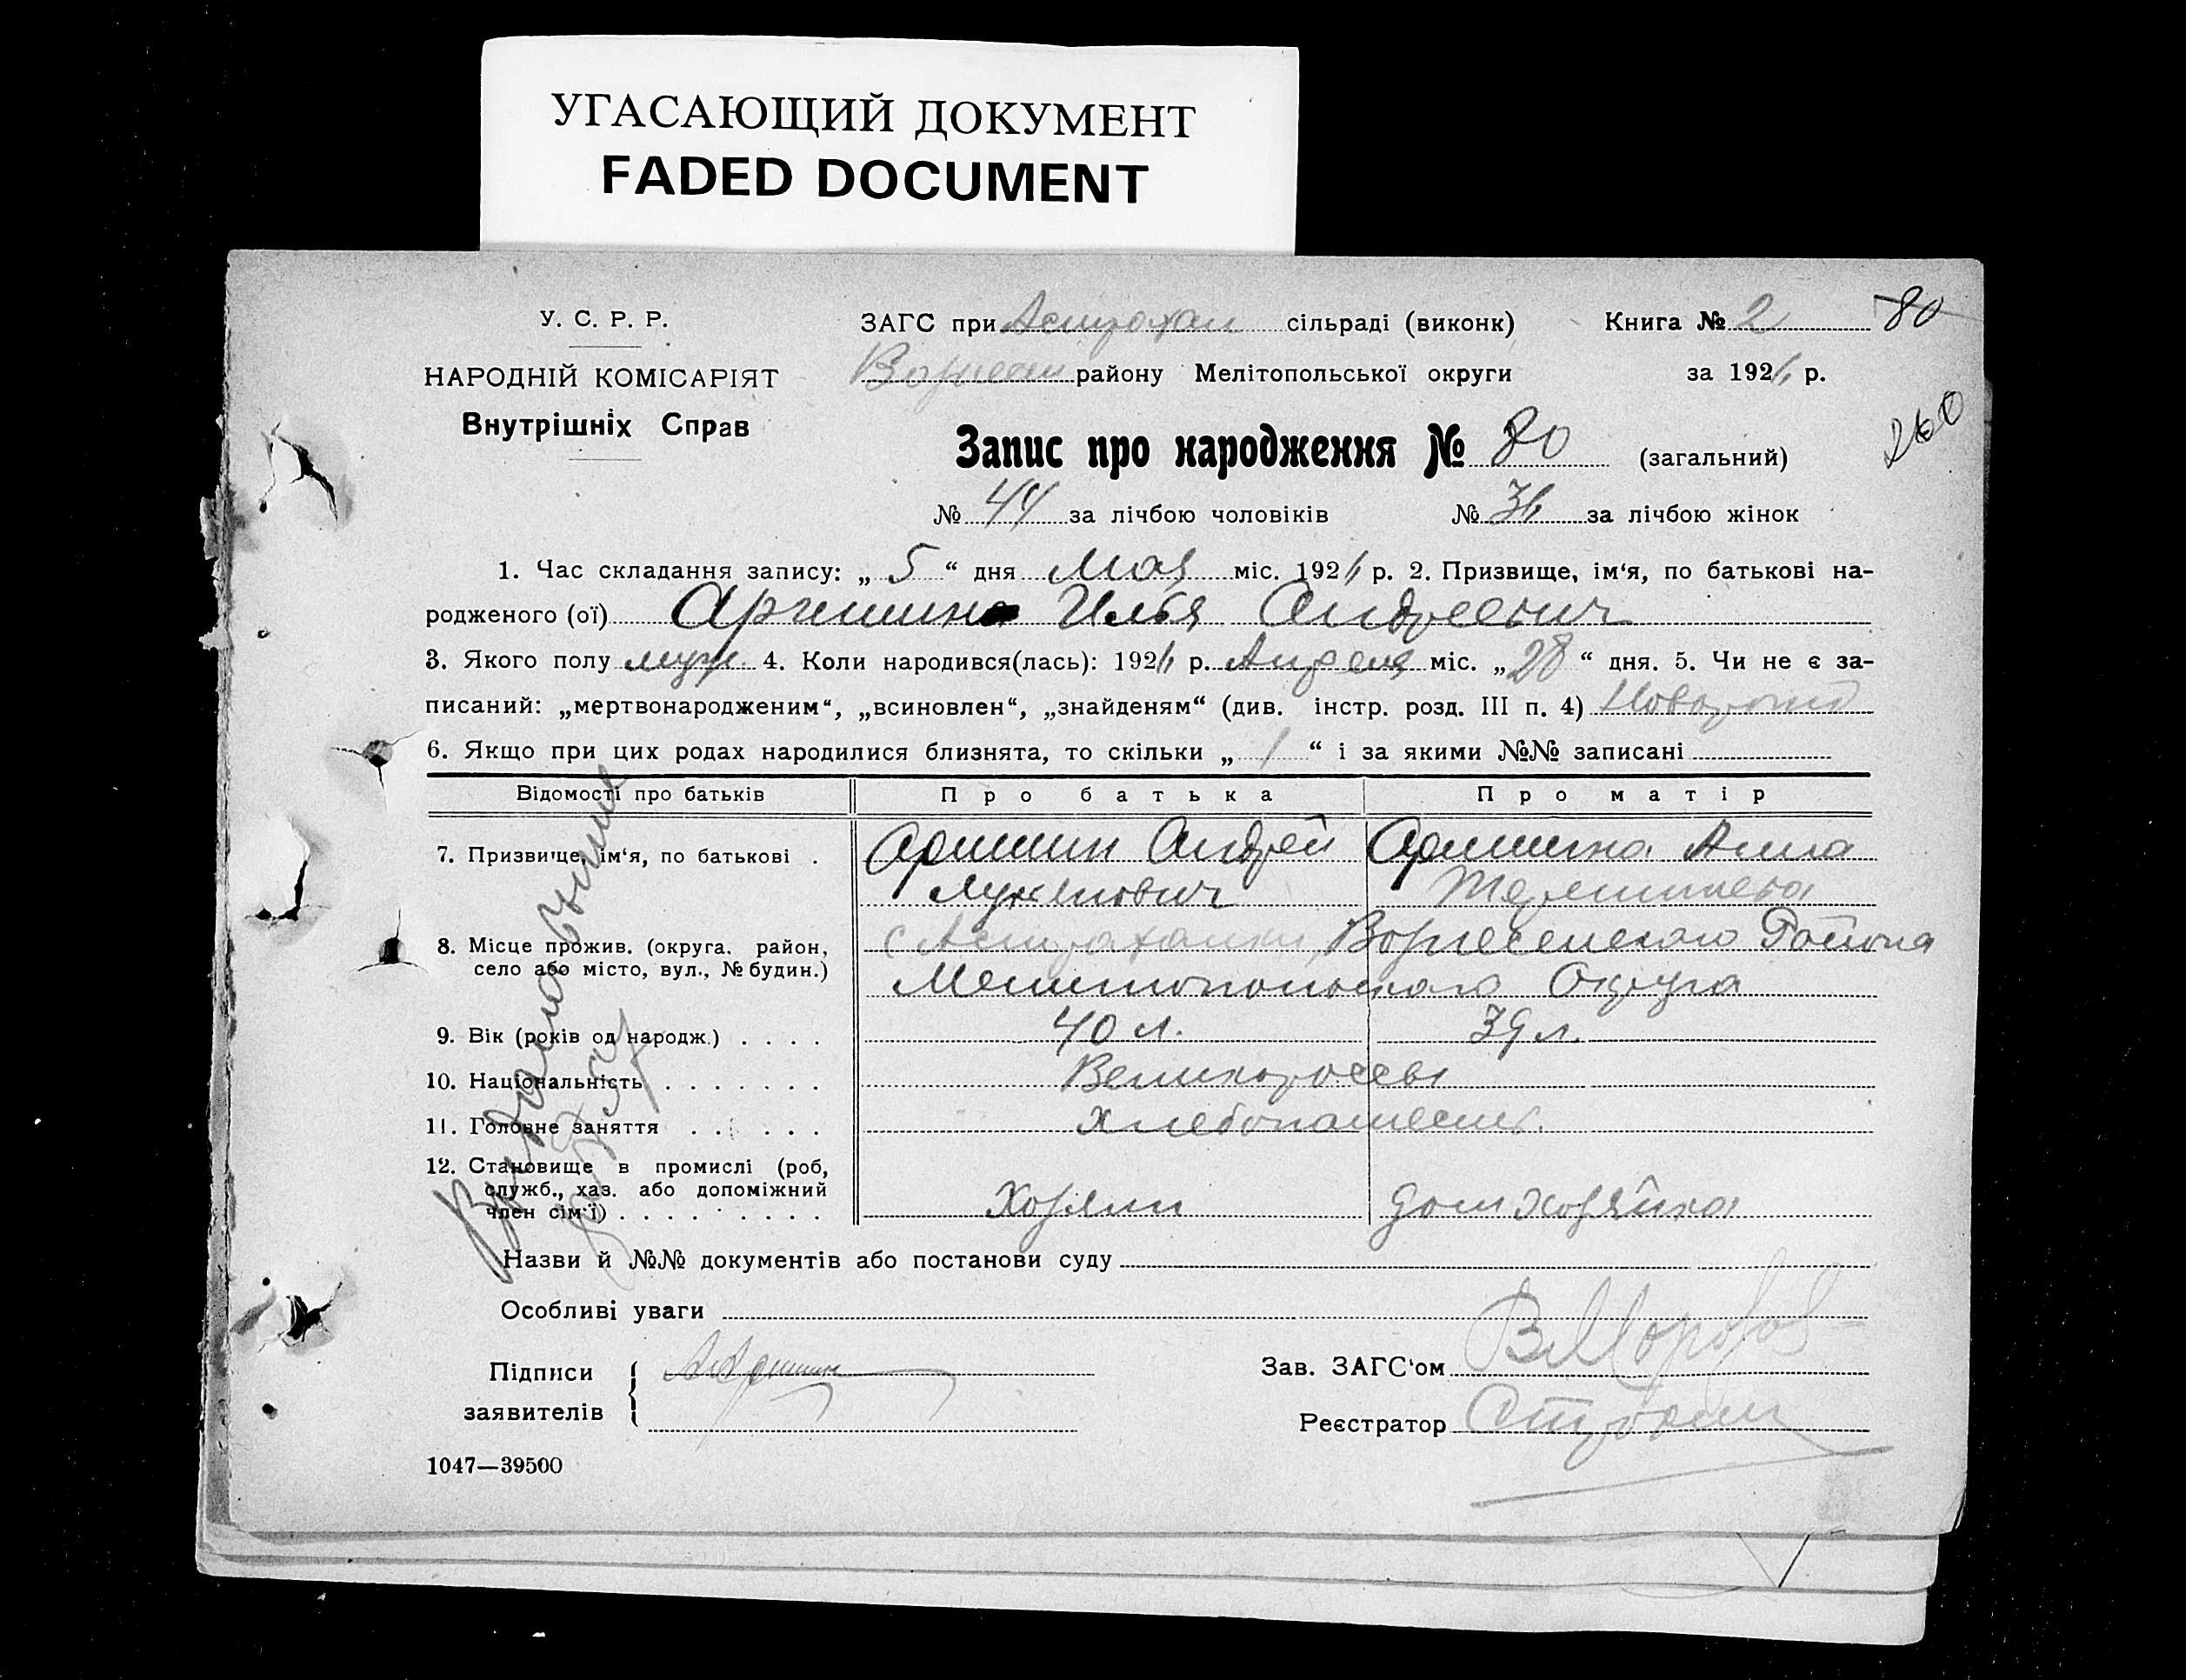 УГАСАЮЩИЙ ДОКУМЕНТ
FADED DOCUMENT
У. С. Р. Р.
НАРОДНІЙ КОМІСАРІЯТ
Внутрішніх Справ
ЗАГС при Астрахан сільраді (виконк)
Книга № 2
80
Вознесен району Мелітопольської округи
за 1926 р.
260
Запис про народження № 80 (загальний)
№ 44 за лічбою чоловіків № 36 за лічбою жінок
1. Час складання запису: „ 5 “ дня Мая міс. 1926 р. 2. Призвище, ім‘я, по батькові на-
родженого (ої) Илья Андреевич
3. Якого полу муж. 4. Коли народився(лась): 1926 р. Апреля міс. „ 28 “ дня. 5. Чи не є за-
писаний: „мертвонародженим“, „всиновлен“, „знайденям“ (див. інстр. розд. III п. 4)
6. Якщо при цих родах народилися близнята, то скільки „ 1 “ і за якими №№ записані
Відомості про батьків Про батька Про матір
7. Призвище, ім‘я, по батькові . Аришин Андрей Аришина Анна
8. Місце прожив. (округа, район, с Астраханки, Вознесенского Района
село або місто, вул., № будин.) Мелитопольского Округа
9. Вік (років од народж.) . . . . 40 л. 39 л.
10. Національність . . . . . . . Великороссы
11. Головне заняття . . . . . . Хлебопашест.
12. Становище в промислі (роб,
служб., хаз. або допоміжний
член сім‘ї) . . . . . . . . . Хозяин домхозяйка
Назви й №№ документів або постанови суду
Особливі уваги
Підписи
заявителів
Зав. ЗАГС‘ом ВМорозов
Реєстратор
1047—39500